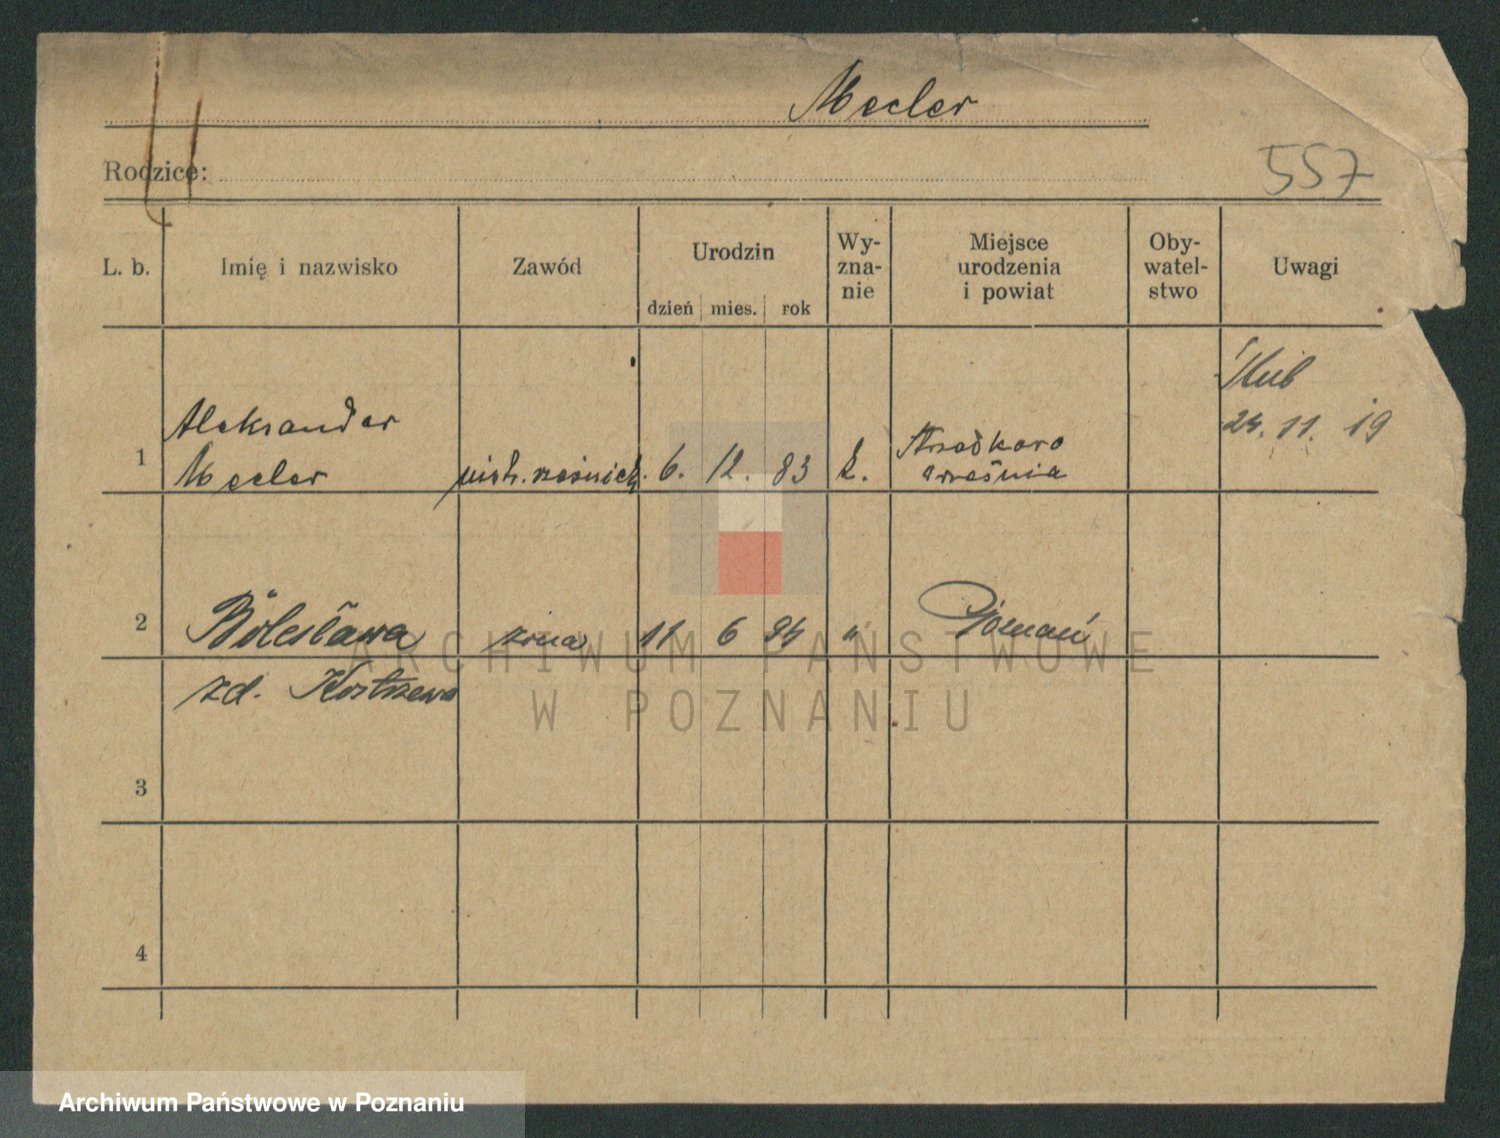 Mecler
Rodzice:
557
L. b.
Imię i nazwisko
Zawód
Urodzin
dzień mies. rok
Wy-
zna-
nie
Miejsce
urodzenia
i powiat
Oby-
watel-
stwo
Uwagi
1
Aleksander
Mecler
mistr. rzeźnick.
6. 12. 83
k.
września
Ślub
24. 11. 19
2
Bolesława
żona
11 6 94
"
Poznań
zd. Kostrzewa
3
4
ARCHIWUM PAŃSTWOWE
W POZNANIU
Archiwum Państwowe w Poznaniu